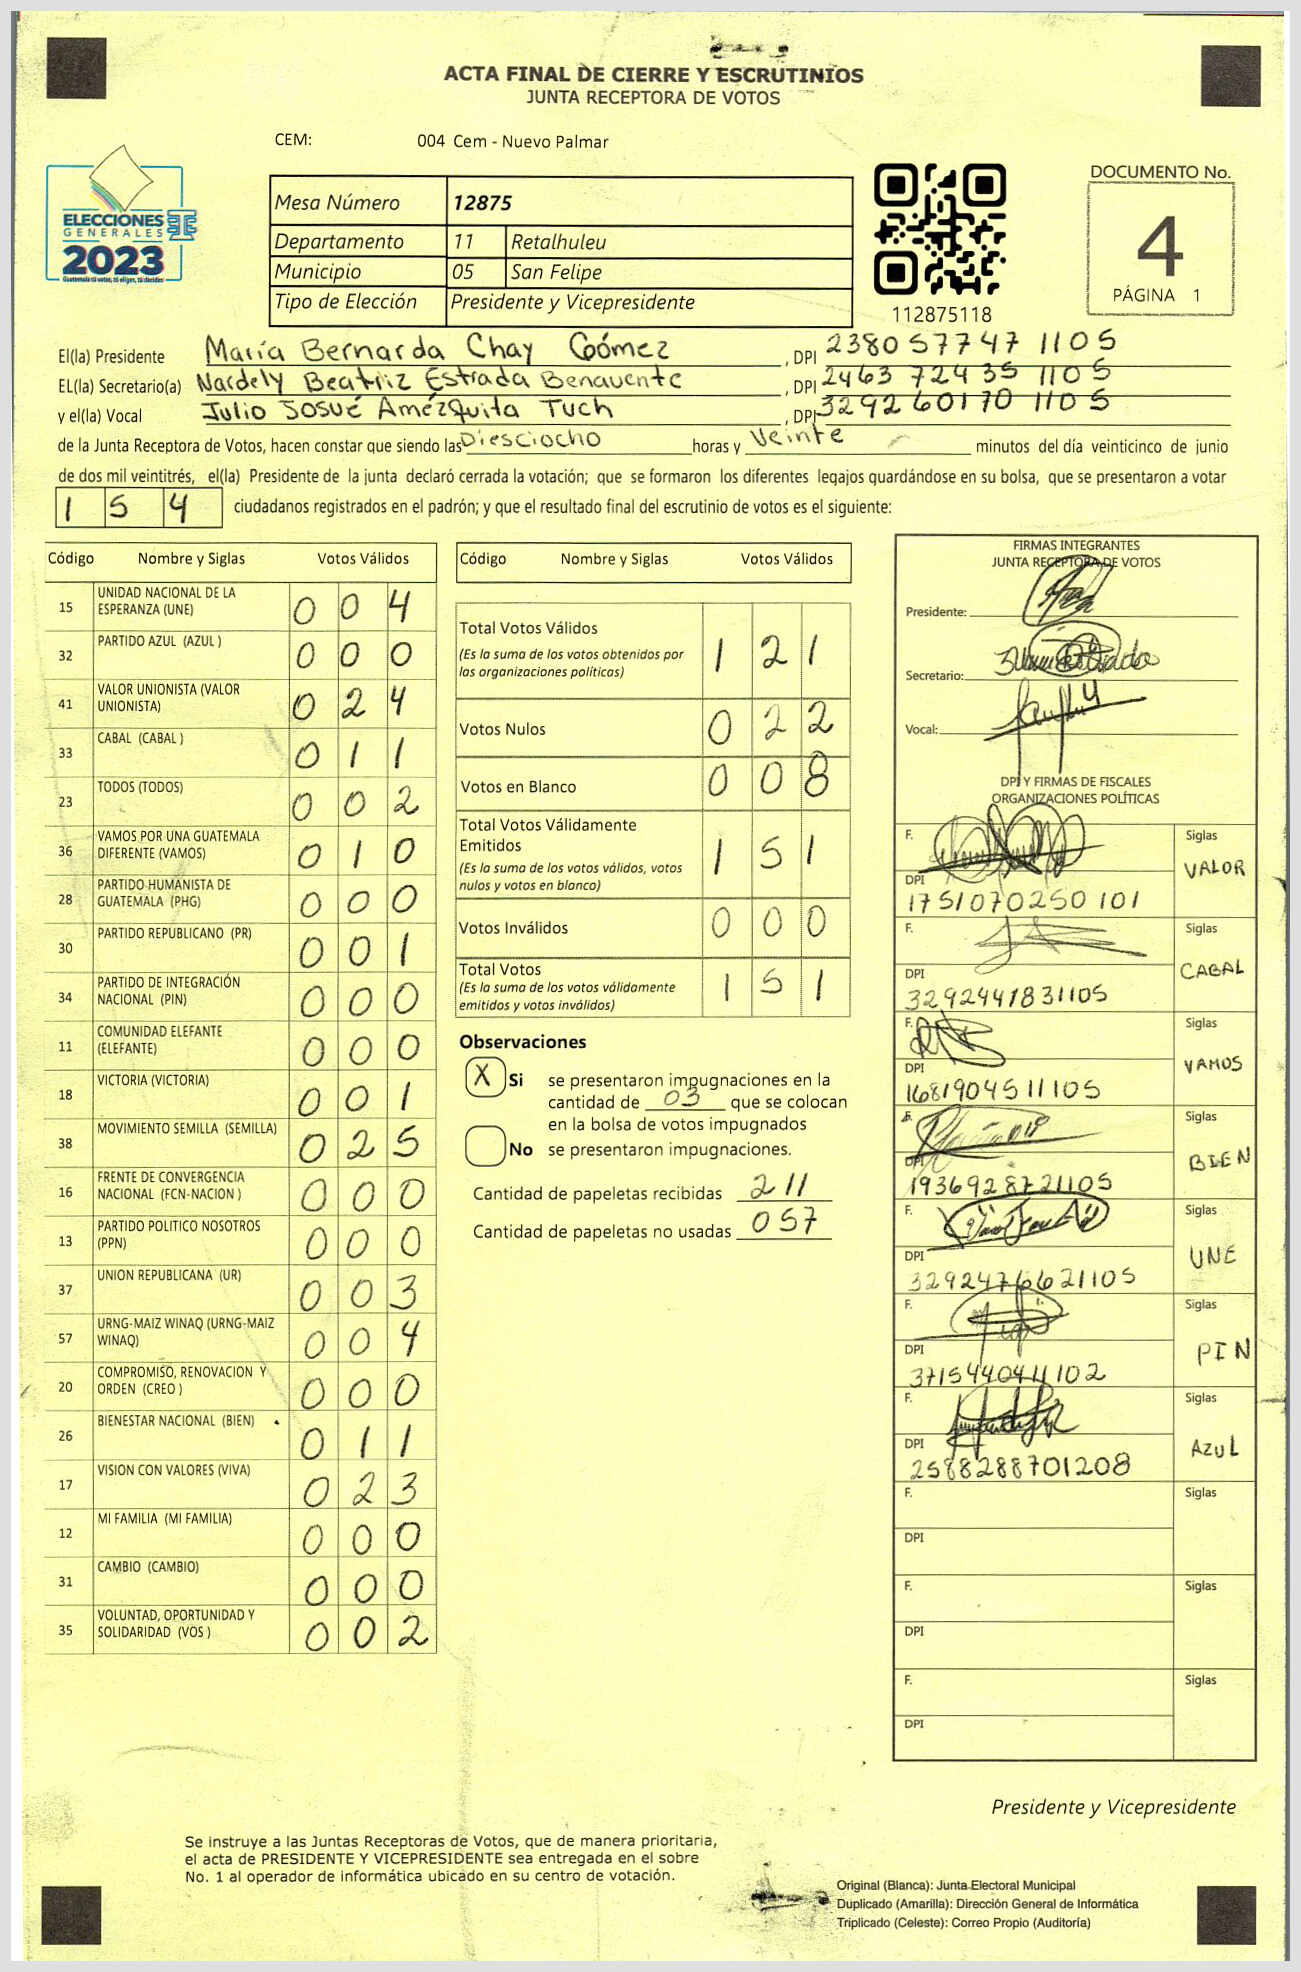 ACTA FINAL DE CIERRE Y ESCRUTINIOS
JUNTA RECEPTORA DE VOTOS
CEM: 004 Cem - Nuevo Palmar
ELECCIONES
GENERALES
2023
Guatemala tú votas, tú eliges, tú decides
Mesa Número 12875
Departamento 11 Retalhuleu
Municipio 05 San Felipe
Tipo de Elección Presidente y Vicepresidente
112875118
DOCUMENTO No.
4
PÁGINA 1
El(la) Presidente María Bernarda Chay Gómez, DPI 2380 57747 1105
EL(la) Secretario(a) Nardely Beatriz Estrada Benavente, DPI 2463 72435 1105
y el(la) Vocal Julio Josué Amézquita Tuch, DPI 3292 60170 1105
de la Junta Receptora de Votos, hacen constar que siendo las Diesciocho horas y Veinte minutos del día veinticinco de junio
de dos mil veintitrés, el(la) Presidente de la junta declaró cerrada la votación; que se formaron los diferentes legajos guardándose en su bolsa, que se presentaron a votar
1 5 4 ciudadanos registrados en el padrón; y que el resultado final del escrutinio de votos es el siguiente:
Código Nombre y Siglas Votos Válidos
15 UNIDAD NACIONAL DE LA
ESPERANZA (UNE) 0 0 4
32 PARTIDO AZUL (AZUL ) 0 0 0
41 VALOR UNIONISTA (VALOR
UNIONISTA) 0 2 4
33 CABAL (CABAL ) 0 1 1
23 TODOS (TODOS) 0 0 2
36 VAMOS POR UNA GUATEMALA
DIFERENTE (VAMOS) 0 1 0
28 PARTIDO HUMANISTA DE
GUATEMALA (PHG) 0 0 0
30 PARTIDO REPUBLICANO (PR) 0 0 1
34 PARTIDO DE INTEGRACIÓN
NACIONAL (PIN) 0 0 0
11 COMUNIDAD ELEFANTE
(ELEFANTE) 0 0 0
18 VICTORIA (VICTORIA) 0 0 1
38 MOVIMIENTO SEMILLA (SEMILLA) 0 2 5
16 FRENTE DE CONVERGENCIA
NACIONAL (FCN-NACION ) 0 0 0
13 PARTIDO POLITICO NOSOTROS
(PPN) 0 0 0
37 UNION REPUBLICANA (UR) 0 0 3
57 URNG-MAIZ WINAQ (URNG-MAIZ
WINAQ) 0 0 4
20 COMPROMISO, RENOVACION Y
ORDEN (CREO ) 0 0 0
26 BIENESTAR NACIONAL (BIEN) 0 1 1
17 VISION CON VALORES (VIVA) 0 2 3
12 MI FAMILIA (MI FAMILIA) 0 0 0
31 CAMBIO (CAMBIO) 0 0 0
35 VOLUNTAD, OPORTUNIDAD Y
SOLIDARIDAD (VOS ) 0 0 2
Código Nombre y Siglas Votos Válidos
Total Votos Válidos
(Es la suma de los votos obtenidos por
las organizaciones políticas) 1 2 1
Votos Nulos 0 2 2
Votos en Blanco 0 0 8
Total Votos Válidamente
Emitidos
(Es la suma de los votos válidos, votos
nulos y votos en blanco) 1 5 1
Votos Inválidos 0 0 0
Total Votos
(Es la suma de los votos válidamente
emitidos y votos inválidos) 1 5 1
Observaciones
X Si se presentaron impugnaciones en la
cantidad de 03 que se colocan
en la bolsa de votos impugnados
No se presentaron impugnaciones.
Cantidad de papeletas recibidas 211
Cantidad de papeletas no usadas 057
FIRMAS INTEGRANTES
JUNTA RECEPTORA DE VOTOS
Presidente:
Secretario:
Vocal:
DPI Y FIRMAS DE FISCALES
ORGANIZACIONES POLÍTICAS
F. Siglas
VALOR
DPI
1751070250 101
F. Siglas
CABAL
DPI
3292441831105
F. Siglas
VAMOS
DPI
1681904511105
F. Siglas
BIEN
DPI
1936928721105
F. Siglas
UNE
DPI
3292476621105
F. Siglas
PIN
DPI
3715440411102
F. Siglas
AZUL
DPI
2588288701208
F. Siglas
DPI
F. Siglas
DPI
F. Siglas
DPI
Presidente y Vicepresidente
Se instruye a las Juntas Receptoras de Votos, que de manera prioritaria,
el acta de PRESIDENTE Y VICEPRESIDENTE sea entregada en el sobre
No. 1 al operador de informática ubicado en su centro de votación.
Original (Blanca): Junta Electoral Municipal
Duplicado (Amarilla): Dirección General de Informática
Triplicado (Celeste): Correo Propio (Auditoría)